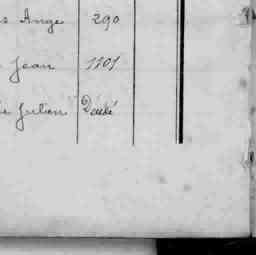 Ange 290
Jean 1101
Julien Décédé